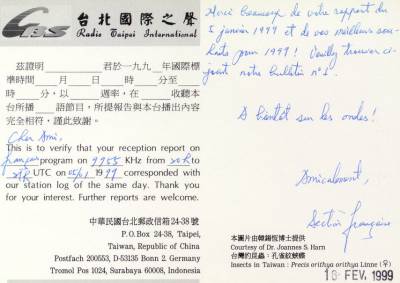 CBS
台北國際之聲
Radio Taipei International
茲證明 君於一九九 年國際標
準時間 月 日 時 分至
時 分，以 週率，在 收聽本
台所播 語節目，所提報告與本台播出內容
完全相符，謹此致謝。
Cher Ami,
This is to verify that your reception report on
français program on 9955 KHz from to
UTC on 05/01 1999 corresponded with
our station log of the same day. Thank you
for your interest. Further reports are welcome.
中華民國台北郵政信箱24-38號
P.O.Box 24-38, Taipei,
Taiwan, Republic of China
Postfach 200553, D-53135 Bonn 2. Germany
Tromol Pos 1024, Surabaya 60008, Indonesia
Merci beaucoup de votre rapport du
5 janvier 1999 et de vos meilleurs sou-
haits pour 1999! Veuillez trouver ci-
joint notre bulletin n°1.
A bientôt sur les ondes!
Amicalement,
Section française
本圖片由韓錫恆博士提供
Courtesy of Dr. Joannes S. Harn
台灣的昆蟲：孔雀紋蛺蝶
Insects in Taiwan : Precis orithya orithya Linne (♀)
FEV. 1999